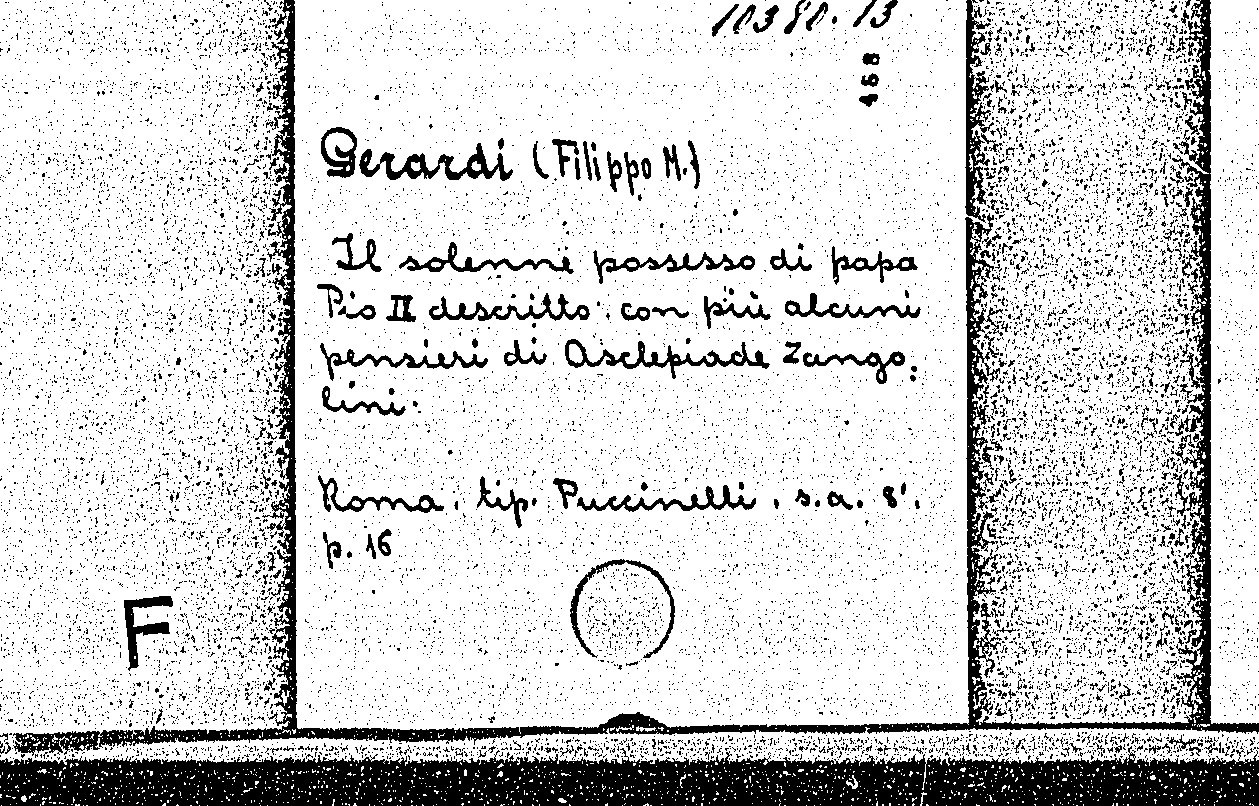 10380.13
468
Gerardi (Filippo M.)
Il solenne possesso di papa
Pio IX descritto. con più alcuni
pensieri di Asclepiade Zango:
lini.
Roma, tip. Puccinelli, s.a. 8'.
p. 16
F